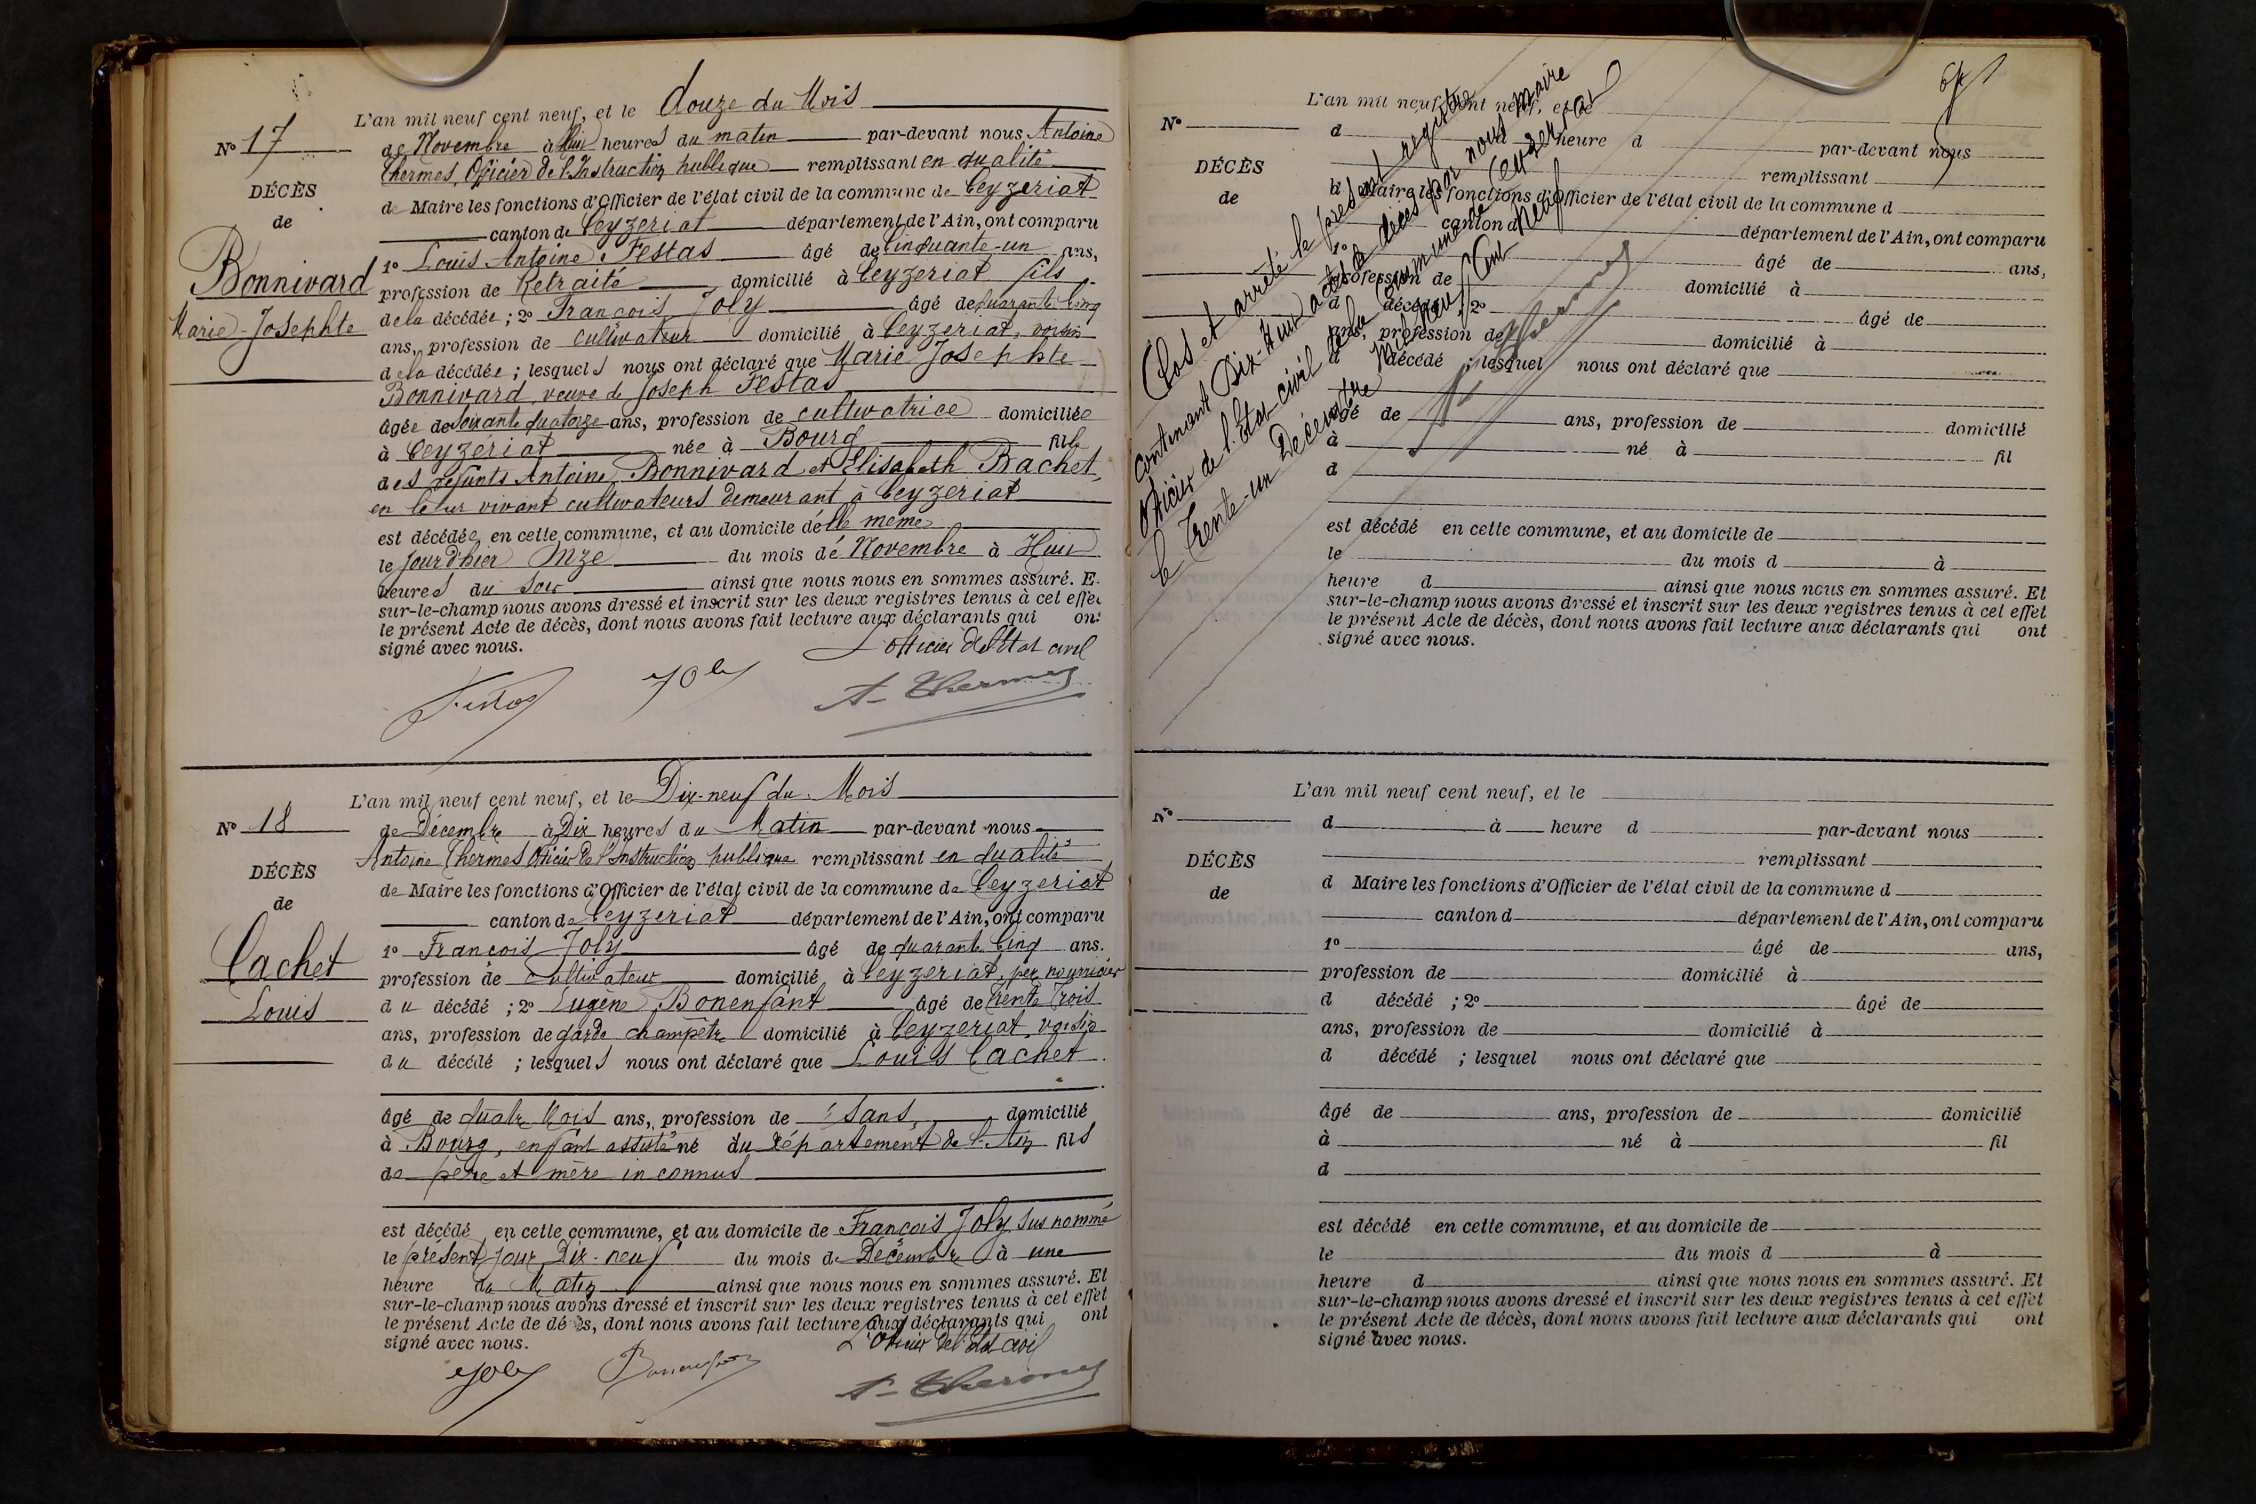 L'an mil neuf cent neuf, et le douze du Mois
N° 17
de Novembre à Huit heures du matin par-devant nous Antoine
Thermes, Officier de l'Instruction publique remplissant en qualité
DÉCÈS
de Maire les fonctions d'Officier de l'état civil de la commune de Ceyzeriat
de
canton de Ceyzeriat département de l'Ain, ont comparu
Bonnivard
1° Louis Antoine Festas âgé de Cinquante-un ans,
profession de Retraité domicilié à Ceyzeriat fils
Marie-Josephte
de la décédée ; 2° François Joly âgé de quarante Cinq
ans, profession de cultivateur domicilié à Ceyzeriat, voisin
de la décédée ; lesquels nous ont déclaré que Marie Josephte
Bonnivard, veuve de Joseph Festas
âgée de Soixante quatorze ans, profession de cultivatrice domiciliée
à Ceyzériat née à Bourg fille
des défunts Antoine Bonnivard et Elisabeth Bachet,
en leur vivant cultivateurs demeurant à Ceyzeriat
est décédée en cette commune, et au domicile d'elle même
le jour d'hier Onze du mois de Novembre à Huit
heures du soir ainsi que nous nous en sommes assuré. E
sur-le-champ nous avons dressé et inscrit sur les deux registres tenus à cet effet
le présent Acte de décès, dont nous avons fait lecture aux déclarants qui ont
signé avec nous.
L'officier de l'Etat civil
Festas Joly A. Thermes
L'an mil neuf cent neuf, et le Dix-neuf du Mois
N° 18
de Décembre à Dix heures du Matin par-devant nous
Antoine Thermes Officier de l'Instruction publique remplissant en qualité
DÉCÈS
de Maire les fonctions d'Officier de l'état civil de la commune de Ceyzeriat
de
canton de Ceyzeriat département de l'Ain, ont comparu
Cachet
1° François Joly âgé de quarante Cinq ans.
profession de cultivateur domicilié à Ceyzeriat, père nourricier
Louis
du décédé ; 2° Eugène Bonenfant âgé de Trente Trois
ans, profession de garde champêtre domicilié à Ceyzeriat, voisin
du décédé ; lesquels nous ont déclaré que Louis Cachet.
âgé de quatre Mois ans, profession de sans, domicilié
à Bourg, enfant assisté né du Département de l'Ain fils
de père et mère inconnus
est décédé en cette commune, et au domicile de François Joly sus nommé
le présent jour Dix-neuf du mois de Décembre à une
heure du Matin ainsi que nous nous en sommes assuré. Et
sur-le-champ nous avons dressé et inscrit sur les deux registres tenus à cet effet
le présent Acte de décès, dont nous avons fait lecture aux déclarants qui ont
signé avec nous.
L'Officier de l'Etat civil
Joly Bonenfant A. Thermes
Clos et arrêté le présent registre
contenant Dix-Huit actes de décès par nous Maire
Officier de l'Etat civil de la Commune de Ceyzeriat
le Trente-un Décembre Mil Neuf Cent Neuf
A. Thermes
L'an mil neuf cent neuf, et le
N°
d à heure d par-devant nous
remplissant
DÉCÈS
d Maire les fonctions d'Officier de l'état civil de la commune d
de
canton d département de l'Ain, ont comparu
1° âgé de ans,
profession de domicilié à
d décédé ; 2° âgé de
ans, profession de domicilié à
d décédé ; lesquel nous ont déclaré que
âgé de ans, profession de domicilié
à né à fil
d
est décédé en cette commune, et au domicile de
le du mois d à
heure d ainsi que nous nous en sommes assuré. Et
sur-le-champ nous avons dressé et inscrit sur les deux registres tenus à cet effet
le présent Acte de décès, dont nous avons fait lecture aux déclarants qui ont
signé avec nous.
L'an mil neuf cent neuf, et le
N°
d à heure d par-devant nous
remplissant
DÉCÈS
d Maire les fonctions d'Officier de l'état civil de la commune d
de
canton d département de l'Ain, ont comparu
1° âgé de ans,
profession de domicilié à
d décédé ; 2° âgé de
ans, profession de domicilié à
d décédé ; lesquel nous ont déclaré que
âgé de ans, profession de domicilié
à né à fil
d
est décédé en cette commune, et au domicile de
le du mois d à
heure d ainsi que nous nous en sommes assuré. Et
sur-le-champ nous avons dressé et inscrit sur les deux registres tenus à cet effet
le présent Acte de décès, dont nous avons fait lecture aux déclarants qui ont
signé avec nous.